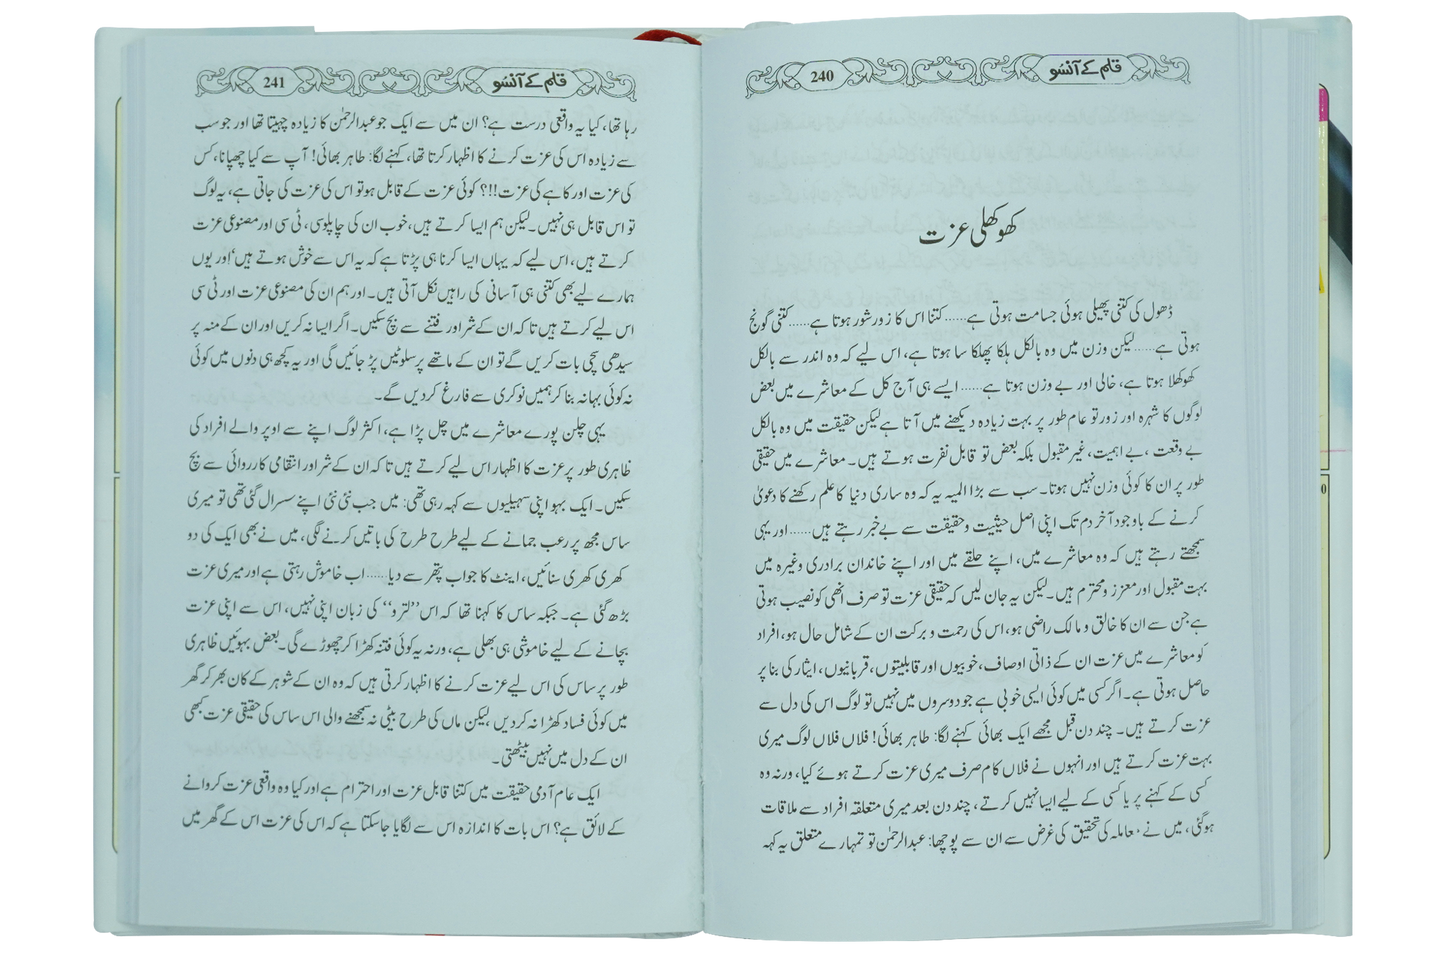 240
قلم کے آنسو
کھوکھلی عزت
ڈھول کی کتنی پھیلی ہوئی جسامت ہوتی ہے...... کتنا اس کا زور شور ہوتا ہے...... کتنی گونج
ہوتی ہے...... لیکن وزن میں وہ بالکل ہلکا پھلکا سا ہوتا ہے، اس لیے کہ وہ اندر سے بالکل
کھوکھلا ہوتا ہے، خالی اور بے وزن ہوتا ہے...... ایسے ہی آج کل کے معاشرے میں بعض
لوگوں کا شہرہ اور زور تو عام طور پر بہت زیادہ دیکھنے میں آتا ہے لیکن حقیقت میں وہ بالکل
بے وقعت، بے اہمیت، غیر مقبول بلکہ بعض تو قابل نفرت ہوتے ہیں۔ معاشرے میں حقیقی
طور پر ان کا کوئی وزن نہیں ہوتا۔ سب سے بڑا المیہ یہ کہ وہ ساری دنیا کا علم رکھنے کا دعویٰ
کرنے کے باوجود آخر دم تک اپنی اصل حیثیت و حقیقت سے بے خبر رہتے ہیں...... اور یہی
سمجھتے رہتے ہیں کہ وہ معاشرے میں، اپنے حلقے میں اور اپنے خاندان برادری وغیرہ میں
بہت مقبول اور معزز و محترم ہیں۔ لیکن یہ جان لیں کہ حقیقی عزت تو صرف انھی کو نصیب ہوتی
ہے جن سے ان کا خالق و مالک راضی ہو، اس کی رحمت و برکت ان کے شامل حال ہو، افراد
کو معاشرے میں عزت ان کے ذاتی اوصاف، خوبیوں اور قابلیتوں، قربانیوں، ایثار کی بنا پر
حاصل ہوتی ہے۔ اگر کسی میں کوئی ایسی خوبی ہے جو دوسروں میں نہیں تو لوگ اس کی دل سے
عزت کرتے ہیں۔ چند دن قبل مجھے ایک بھائی کہنے لگا: طاہر بھائی! فلاں فلاں لوگ میری
بہت عزت کرتے ہیں اور انہوں نے فلاں کام صرف میری عزت کرتے ہوئے کیا، ورنہ وہ
کسی کے کہنے پر یا کسی کے لیے ایسا نہیں کرتے، چند دن بعد میری متعلقہ افراد سے ملاقات
ہو گئی، میں نے معاملہ کی تحقیق کی غرض سے ان سے پوچھا: عبدالرحمٰن تو تمہارے متعلق یہ کہہ
241
قلم کے آنسو
رہا تھا، کیا یہ واقعی درست ہے؟ ان میں سے ایک جو عبدالرحمٰن کا زیادہ چہیتا تھا اور جو سب
سے زیادہ اس کی عزت کرنے کا اظہار کرتا تھا، کہنے لگا: طاہر بھائی! آپ سے کیا چھپانا، کس
کی عزت اور کاہے کی عزت!!؟ کوئی عزت کے قابل ہو تو اس کی عزت کی جاتی ہے، یہ لوگ
تو اس قابل ہی نہیں۔ لیکن ہم ایسا کرتے ہیں، خوب ان کی چاپلوسی، ٹی سی اور مصنوعی عزت
کرتے ہیں، اس لیے کہ یہاں ایسا کرنا ہی پڑتا ہے کہ یہ اس سے خوش ہوتے ہیں اور یوں
ہمارے لیے بھی کتنی ہی آسانی کی راہیں نکل آتی ہیں۔ اور ہم ان کی مصنوعی عزت اور ٹی سی
اس لیے کرتے ہیں تا کہ ان کے شر اور فتنے سے بچ سکیں۔ اگر ایسا نہ کریں اور ان کے منہ پر
سیدھی سچی بات کریں گے تو ان کے ماتھے پر سلوٹیں پڑ جائیں گی اور یہ کچھ ہی دنوں میں کوئی
نہ کوئی بہانہ بنا کر ہمیں نوکری سے فارغ کر دیں گے۔
یہی چلن پورے معاشرے میں چل پڑا ہے، اکثر لوگ اپنے سے اوپر والے افراد کی
ظاہری طور پر عزت کا اظہار اس لیے کرتے ہیں تا کہ ان کے شر اور انتقامی کارروائی سے بچ
سکیں۔ ایک بہو اپنی سہیلیوں سے کہہ رہی تھی: میں جب نئی نئی اپنے سسرال گئی تھی تو میری
ساس مجھ پر رعب جمانے کے لیے طرح طرح کی باتیں کرنے لگی، میں نے بھی ایک کی دو
کھری کھری سنائیں، اینٹ کا جواب پتھر سے دیا...... اب خاموش رہتی ہے اور میری عزت
بڑھ گئی ہے۔ جبکہ ساس کا کہنا تھا کہ اس ”لترو“ کی زبان اپنی نہیں، اس سے اپنی عزت
بچانے کے لیے خاموشی ہی بھلی ہے، ورنہ یہ کوئی فتنہ کھڑا کر چھوڑے گی۔ بعض بہوئیں ظاہری
طور پر ساس کی اس لیے عزت کرنے کا اظہار کرتی ہیں کہ وہ ان کے شوہر کے کان بھر کر گھر
میں کوئی فساد کھڑا نہ کر دیں، لیکن ماں کی طرح بیٹی نہ سمجھنے والی اس ساس کی حقیقی عزت کبھی
ان کے دل میں نہیں بیٹھتی۔
ایک عام آدمی حقیقت میں کتنا قابل عزت اور احترام ہے اور کیا وہ واقعی عزت کروانے
کے لائق ہے؟ اس بات کا اندازہ اس سے لگایا جا سکتا ہے کہ اس کی عزت اس کے گھر میں